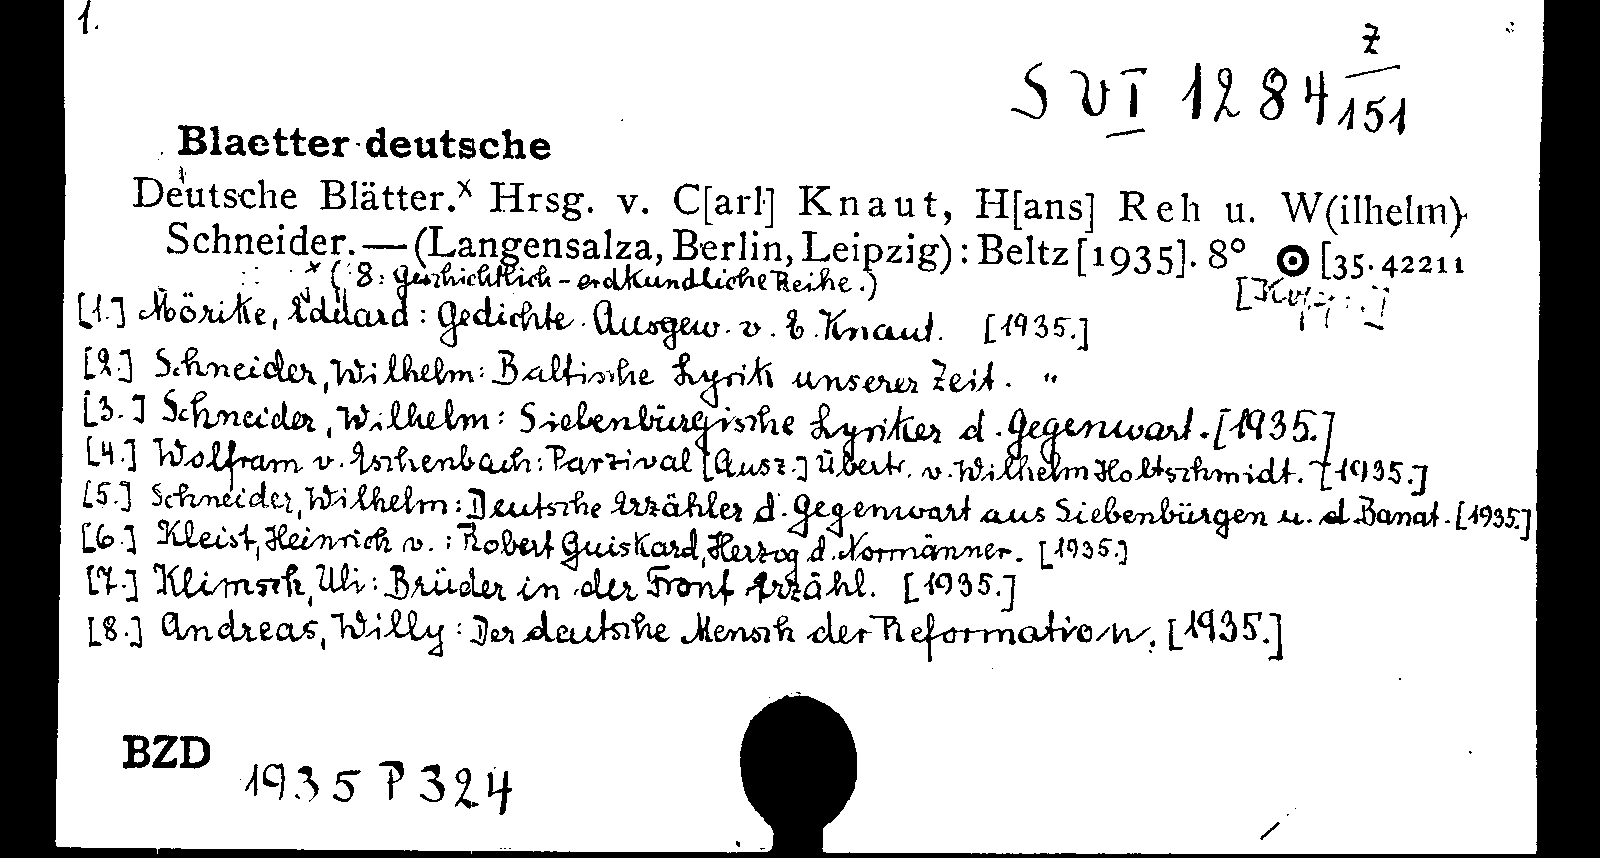 1.
S VI 1284 Z/151
Blaetter deutsche
Deutsche Blätter.x Hrsg. v. C[arl] Knaut, H[ans] Reh u. W(ilhelm)
Schneider. — (Langensalza, Berlin, Leipzig): Beltz [1935]. 8° ⊙ [35. 42211
x (8: Geschichtlich-erdkundliche Reihe.)
[1.] Mörike, Eduard: Gedichte. Ausgew. v. C. Knaut. [1935.]
[2.] Schneider, Wilhelm: Baltische Lyrik unserer Zeit. "
[3.] Schneider, Wilhelm: Siebenbürgische Lyriker d. Gegenwart. [1935.]
[4.] Wolfram v. Eschenbach: Parzival [Ausz.] Übertr. v. Wilhelm Holtschmidt. [1935.]
[5.] Schneider, Wilhelm: Deutsche Erzähler d. Gegenwart aus Siebenbürgen u. d. Banat. [1935.]
[6.] Kleist, Heinrich v.: Robert Guiskard, Herzog d. Normänner. [1935.]
[7.] Klimsch, Uli: Brüder in der Front Erzähl. [1935.]
[8.] Andreas, Willy: Der deutsche Mensch der Reformation. [1935.]
BZD
1935 P 324